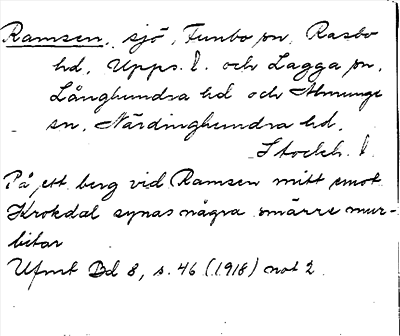 Ramsen, sjö, Funbo sn, Rasbo
hd, Upps. l. och Lagga sn,
Långhundra hd och Almunge
sn, Närdinghundra hd,
Stockh. l.
På ett berg vid Ramsen mitt emot
Krokdal synas några smärre mur-
bitar
Ufmt Bd 8, s. 46 (1918) not 2